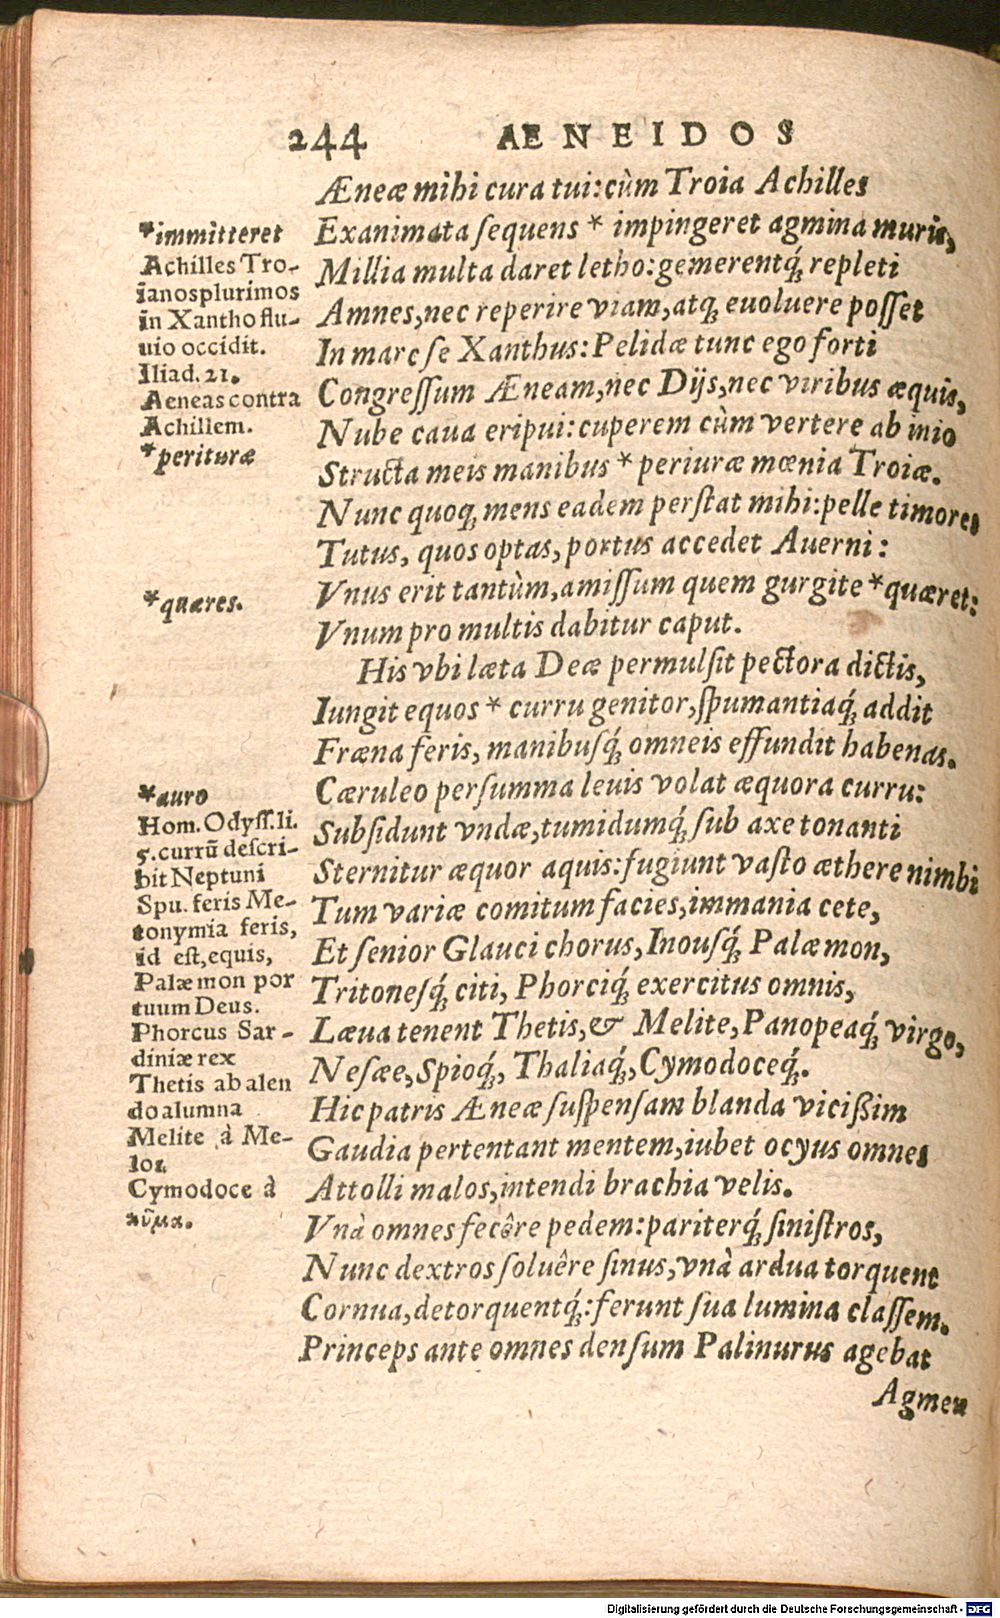 244 AENEIDOS
Æneæ mihi cura tui:cùm Troia Achilles
Exanimata sequens * impingeret agmina muris,
Millia multa daret letho:gemerentq́; repleti
Amnes,nec reperire viam,atq; euoluere posset
In mare se Xanthus:Pelidæ tunc ego forti
Congressum Æneam,nec Dijs,nec viribus æquis,
Nube caua eripui:cuperem cùm vertere ab imo
Structa meis manibus * periuræ mœnia Troiæ.
Nunc quoq; mens eadem perstat mihi:pelle timores
Tutus, quos optas,portus accedet Auerni:
Vnus erit tantùm,amissum quem gurgite *quæret:
Vnum pro multis dabitur caput.
His vbi læta Deæ permulsit pectora dictis,
Iungit equos * curru genitor,spumantiaq́; addit
Fræna feris, manibusq́; omneis effundit habenas.
Cæruleo per summa leuis volat æquora curru:
Subsidunt vndæ,tumidumq́; sub axe tonanti
Sternitur æquor aquis:fugiunt vasto æthere nimbi
Tum variæ comitum facies,immania cete,
Et senior Glauci chorus,Inousq́; Palæmon,
Tritonesq́; citi, Phorciq́; exercitus omnis,
Læua tenent Thetis,& Melite,Panopeaq́; virgo,
Nesæe,Spioq́;, Thaliaq́;,Cymodoceq́;.
Hic patris Æneæ suspensam blanda vicißim
Gaudia pertentant mentem,iubet ocyus omnes
Attolli malos,intendi brachia velis.
Vnà omnes fecêre pedem:pariterq́; sinistros,
Nunc dextros soluêre sinus,vnà ardua torquent
Cornua,detorquentq́;:ferunt sua lumina classem.
Princeps ante omnes densum Palinurus agebat
Agmen
*immitteret
Achilles Tro-
ianos plurimos
in Xantho flu-
uio occidit.
Iliad. 21.
Aeneas contra
Achillem.
*perituræ
*quæres.
*auro
Hom. Odyss. li.
5. currũ descri-
bit Neptuni
Spu. feris Me-
tonymia feris,
id est,equis,
Palæmon por
tuum Deus.
Phorcus Sar-
diniæ rex
Thetis ab alen
do alumna
Melite à Me-
los
Cymodoce à
κῦμα.
Digitalisierung gefördert durch die Deutsche Forschungsgemeinschaft - DFG